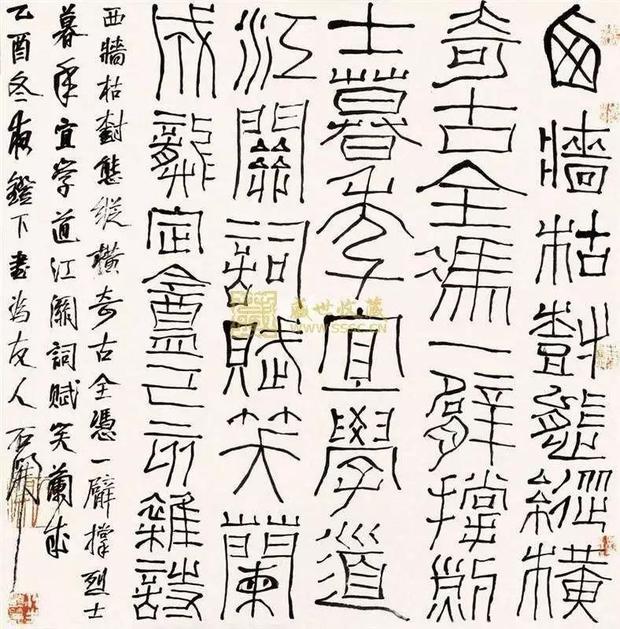 西牆枯樹態縱橫
奇古全馮一臂撐烈
士暮年宜學道
江關詞賦笑蘭
成龔定盦己亥雜詩
西牆枯樹態縱橫奇古全憑一臂撐烈士
暮年宜學道江關詞賦笑蘭成
乙酉冬夜鐙下書為友人石開
盛世收藏
WWW.SSSC.CN